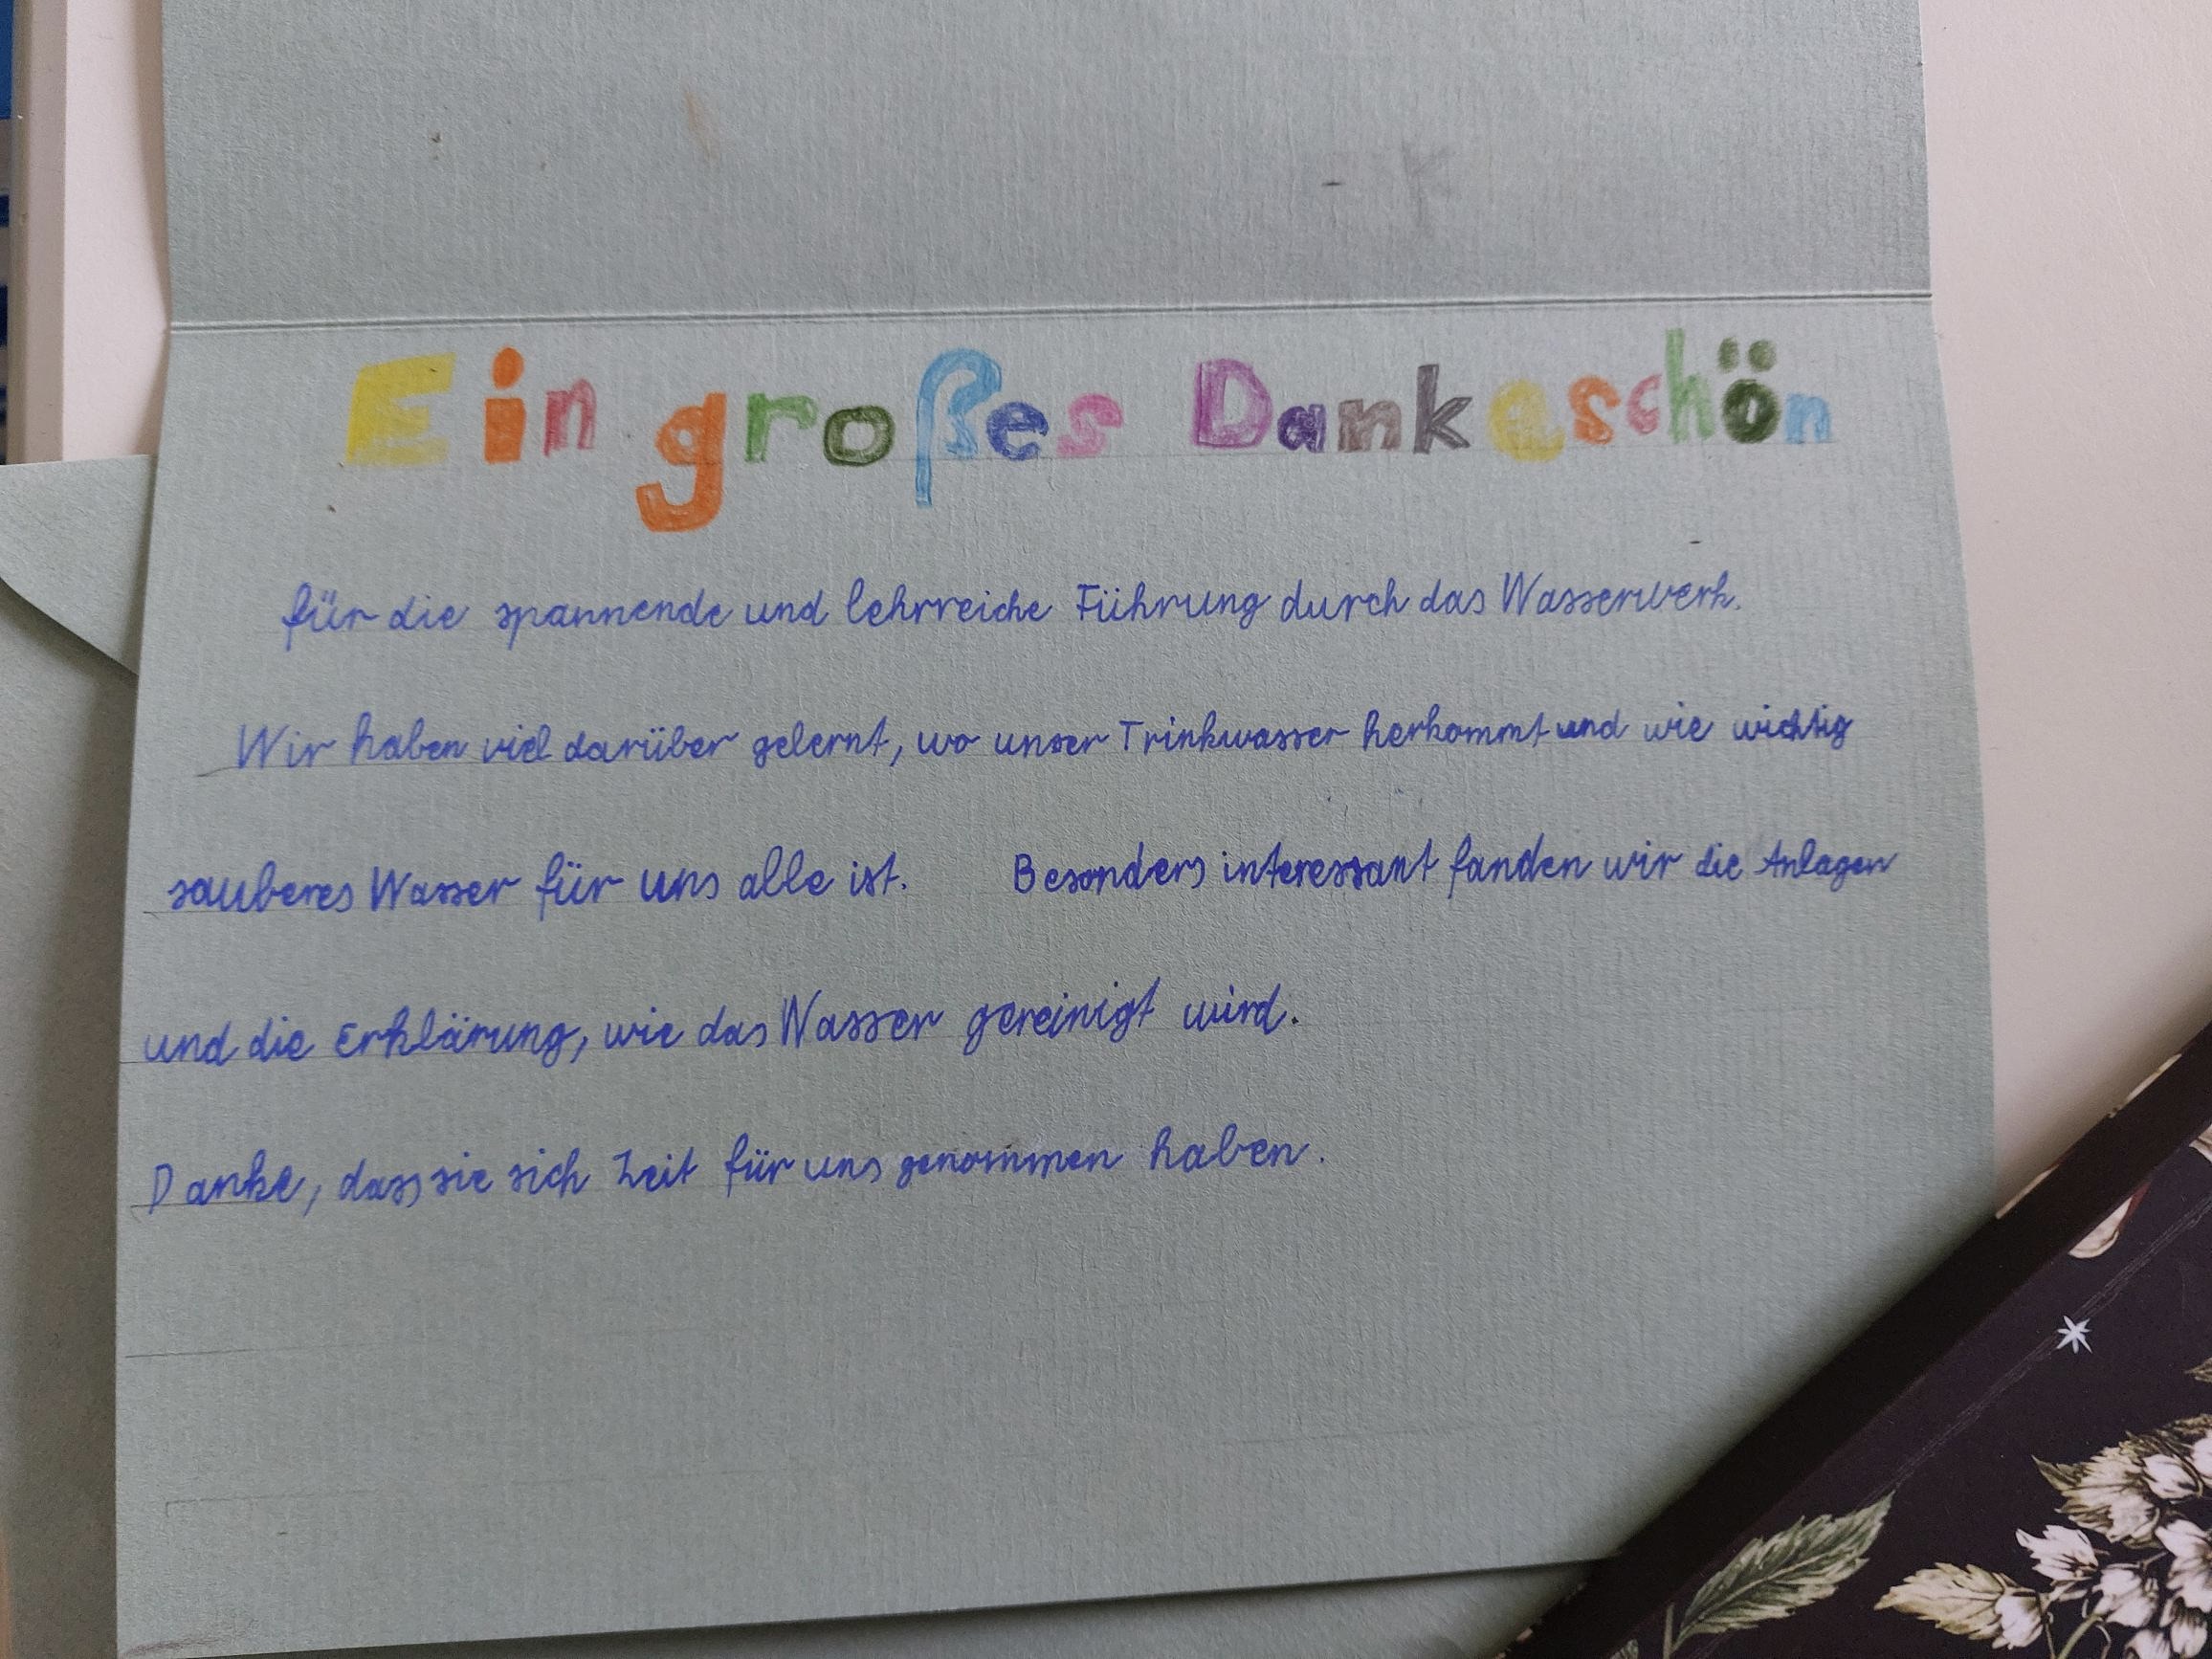 Ein großes Dankeschön
für die spannende und lehrreiche Führung durch das Wasserwerk.
Wir haben viel darüber gelernt, wo unser Trinkwasser herkommt und wie wichtig
sauberes Wasser für uns alle ist. Besonders interessant fanden wir die Anlagen
und die Erklärung, wie das Wasser gereinigt wird.
Danke, dass sie sich Zeit für uns genommen haben.